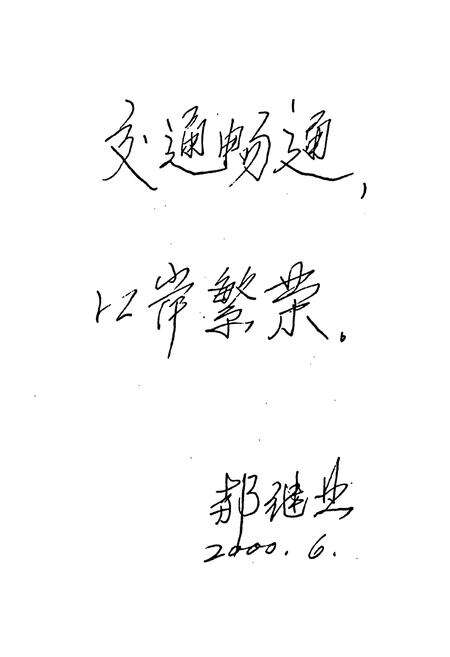 交通畅通，
口岸繁荣。
郝继业
2000.6.